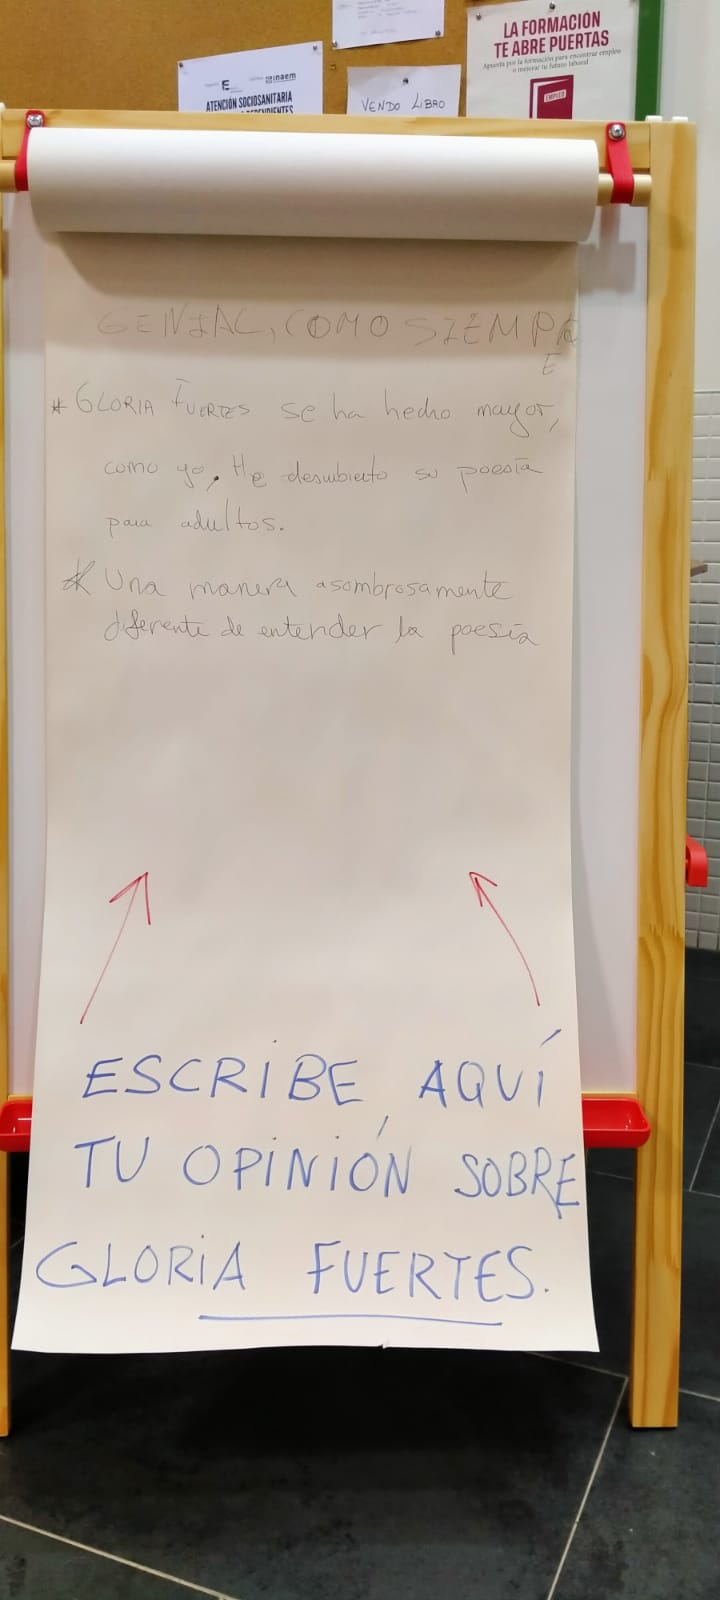 LA FORMACIÓN
TE ABRE PUERTAS
Apuesta por la formación para encontrar empleo
o mejorar tu futuro laboral
EMPLEO
inaem
ATENCIÓN SOCIOSANITARIA
VENDO LIBRO
GENIAL, COMO SIEMPR
E
* GLORIA FUERTES se ha hecho mayor,
como yo. He descubierto su poesía
para adultos.
* Una manera asombrosamente
diferente de entender la poesía
ESCRIBE AQUÍ
TU OPINIÓN SOBRE
GLORIA FUERTES.